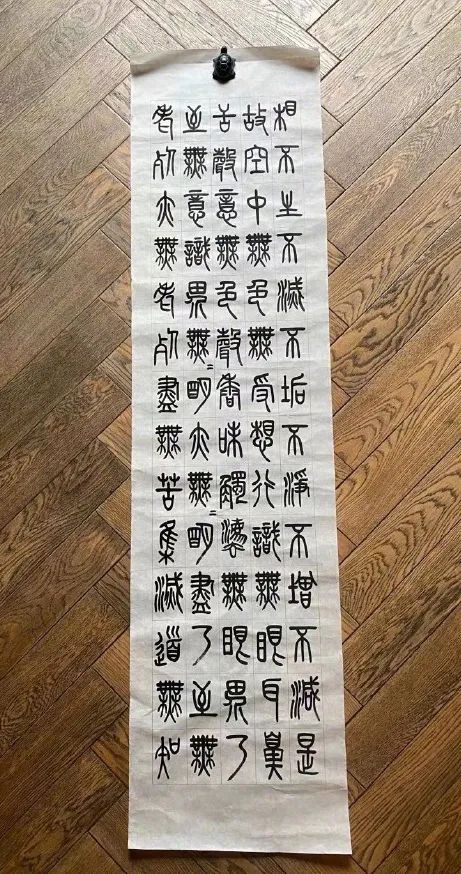 相不生不滅不垢不淨不增不減是
故空中無色無受想行識無眼耳鼻
舌聲意無色聲香味觸法無眼界乃
至無意識界無〻明亦無〻明盡乃至無
老死亦無老死盡無苦集滅道無知